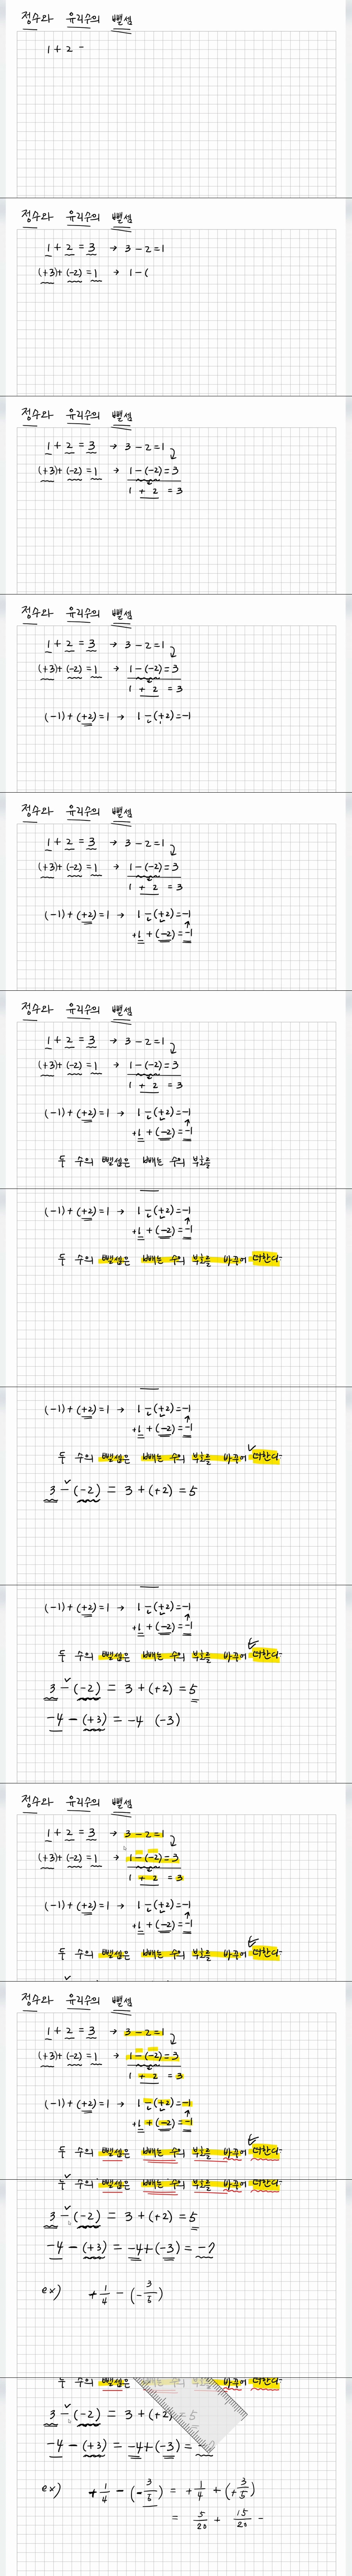 정수와 유리수의 뺄셈
1 + 2 =
정수와 유리수의 뺄셈
1 + 2 = 3 → 3 - 2 = 1
(+3) + (-2) = 1 → 1 - (
정수와 유리수의 뺄셈
1 + 2 = 3 → 3 - 2 = 1
(+3) + (-2) = 1 → 1 - (-2) = 3
1 + 2 = 3
정수와 유리수의 뺄셈
1 + 2 = 3 → 3 - 2 = 1
(+3) + (-2) = 1 → 1 - (-2) = 3
1 + 2 = 3
(-1) + (+2) = 1 → 1 - (+2) = -1
정수와 유리수의 뺄셈
1 + 2 = 3 → 3 - 2 = 1
(+3) + (-2) = 1 → 1 - (-2) = 3
1 + 2 = 3
(-1) + (+2) = 1 → 1 - (+2) = -1
+1 + (-2) = -1
정수와 유리수의 뺄셈
1 + 2 = 3 → 3 - 2 = 1
(+3) + (-2) = 1 → 1 - (-2) = 3
1 + 2 = 3
(-1) + (+2) = 1 → 1 - (+2) = -1
+1 + (-2) = -1
두 수의 뺄셈은 빼는 수의 부호를
(-1) + (+2) = 1 → 1 - (+2) = -1
+1 + (-2) = -1
두 수의 뺄셈은 빼는 수의 부호를 바꾸어 더한다-
(-1) + (+2) = 1 → 1 - (+2) = -1
+1 + (-2) = -1
두 수의 뺄셈은 빼는 수의 부호를 바꾸어 더한다-
3 - (-2) = 3 + (+2) = 5
(-1) + (+2) = 1 → 1 - (+2) = -1
+1 + (-2) = -1
두 수의 뺄셈은 빼는 수의 부호를 바꾸어 더한다-
3 - (-2) = 3 + (+2) = 5
-4 - (+3) = -4 (-3)
정수와 유리수의 뺄셈
1 + 2 = 3 → 3 - 2 = 1
(+3) + (-2) = 1 → 1 - (-2) = 3
1 + 2 = 3
(-1) + (+2) = 1 → 1 - (+2) = -1
+1 + (-2) = -1
두 수의 뺄셈은 빼는 수의 부호를 바꾸어 더한다-
정수와 유리수의 뺄셈
1 + 2 = 3 → 3 - 2 = 1
(+3) + (-2) = 1 → 1 - (-2) = 3
1 + 2 = 3
(-1) + (+2) = 1 → 1 - (+2) = -1
+1 + (-2) = -1
두 수의 뺄셈은 빼는 수의 부호를 바꾸어 더한다-
두 수의 뺄셈은 빼는 수의 부호를 바꾸어 더한다-
3 - (-2) = 3 + (+2) = 5
-4 - (+3) = -4 + (-3) = -7
ex) +1/4 - (-3/5)
두 수의 뺄셈은 빼는 수의 부호를 바꾸어 더한다-
3 - (-2) = 3 + (+2) = 5
-4 - (+3) = -4 + (-3) =
ex) +1/4 - (-3/5) = +1/4 + (+3/5)
= 5/20 + 15/20 -